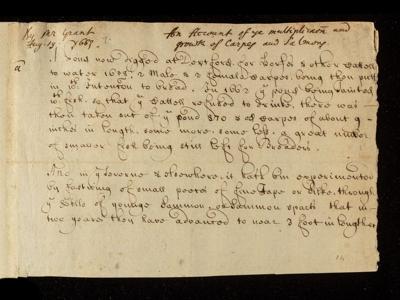 By Mr Grant
Aug. 19th 1667.
An Account of ye multiplicaon and
growth of Carpes and Salmons.
A pond new digged at Deptford, for horses & other Cattell
to water 1658, 2 Male & 2 Female Carpes, being then putt
in wth intention to breed. In 1662 ye pond being tainted
wth Fish, so that ye Cattell refused to drinke, there was
then taken out of ye pond 870 & od Carpes of about 9
inches in length, some more, some less. a great number
of smaller Fish being still left for Breeders.
And in ye Severne & elsewhere, it hath bin experimented
by Fastning of small peeces of fine Tape or Silke through
ye Taile of younge Sammon, or Sammon sparts that in
two yeares they have advanced to near 3 foot in length